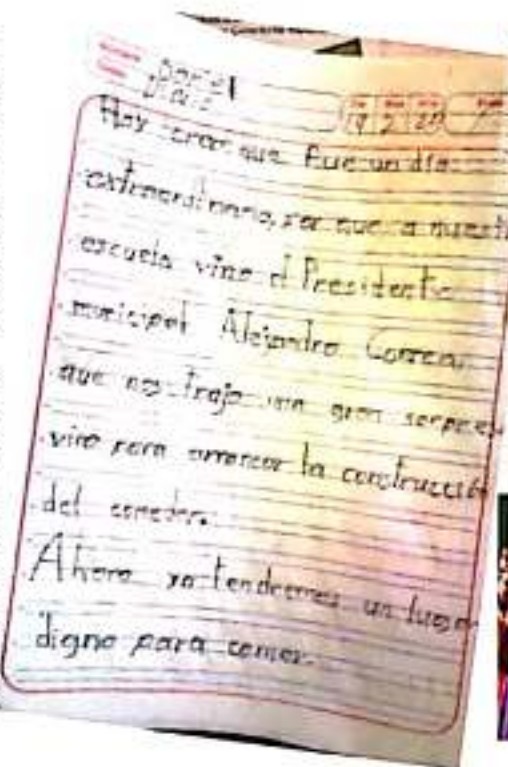 19 2 25
Hoy creo que fue un día
extraordinario, por que a nuestr
escuela vino el Presidente
municipal Alejandro Correa,
que nos trajo una gran sorpres
vino para arrancar la construcción
del comedor.
Ahora ya tendremos un lugar
digno para comer.